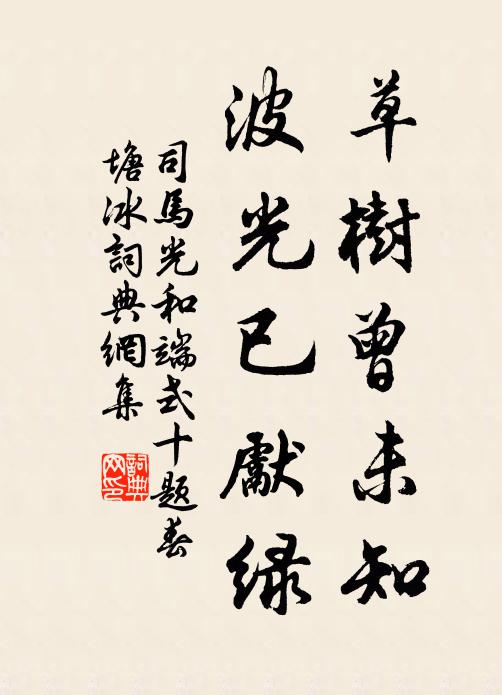 草樹曾未知
波光已獻綠
司馬光和端式十題春
塘冰詞典網集
詞典網印